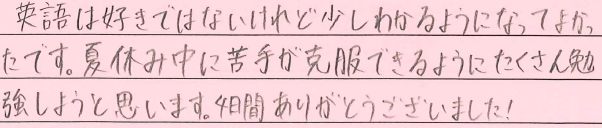 英語は好きではないけれど少しわかるようになってよかっ
たです。夏休み中に苦手が克服できるようにたくさん勉
強しようと思います。4日間ありがとうございました!